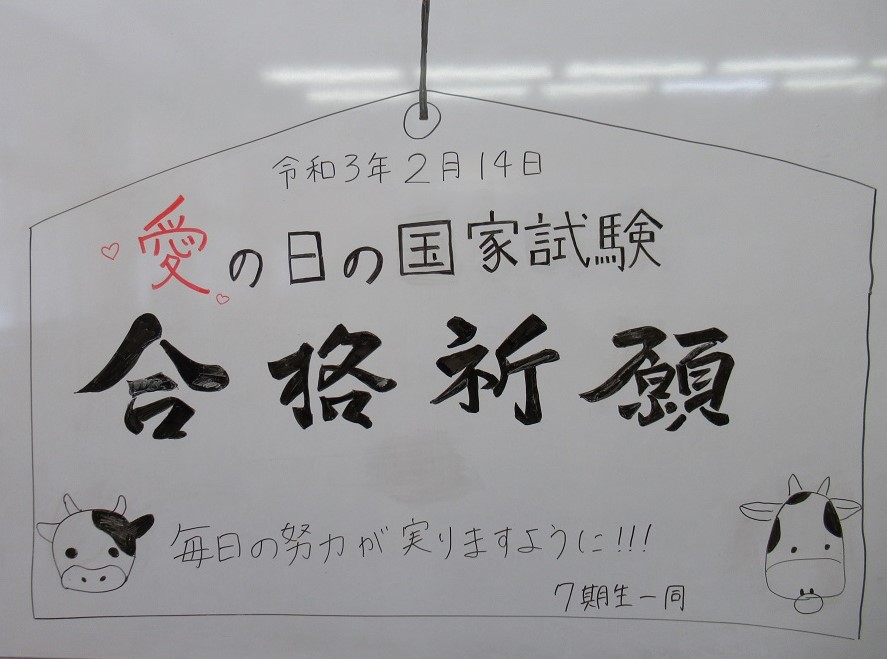 令和3年2月14日
愛の日の国家試験
合格祈願
毎日の努力が実りますように!!!
7期生一同